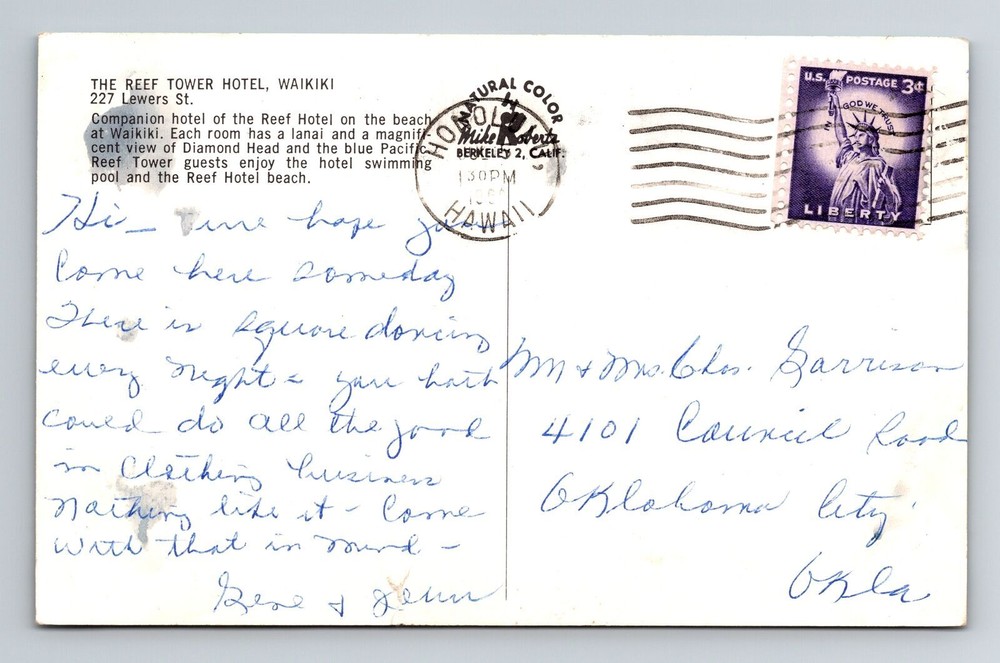 THE REEF TOWER HOTEL, WAIKIKI
227 Lewers St.
Companion hotel of the Reef Hotel on the beach
at Waikiki. Each room has a lanai and a magnifi-
cent view of Diamond Head and the blue Pacific.
Reef Tower guests enjoy the hotel swimming
pool and the Reef Hotel beach.
NATURAL COLOR
Mike Roberts
BERKELEY 2, CALIF.
HONOLULU
130PM
HAWAII
U.S. POSTAGE 3¢
IN GOD WE TRUST
LIBERTY
Hi - hope you
Come here someday
There is square dancing
every night & you both
could do all the good
in clothing business
Nothing like it - Come
with that in mind -
Gene &
Mr & Mrs. Chas. Garrison
4101 Council Road
Oklahoma City
Okla